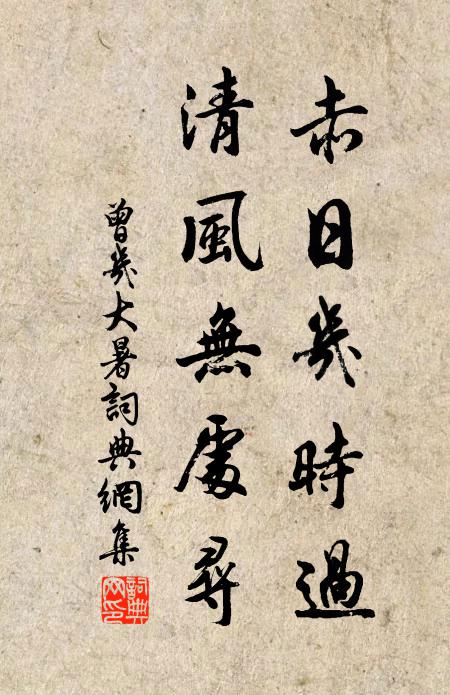 赤日幾時過
清風無處尋
曾幾大暑詞典網集
詞典網印